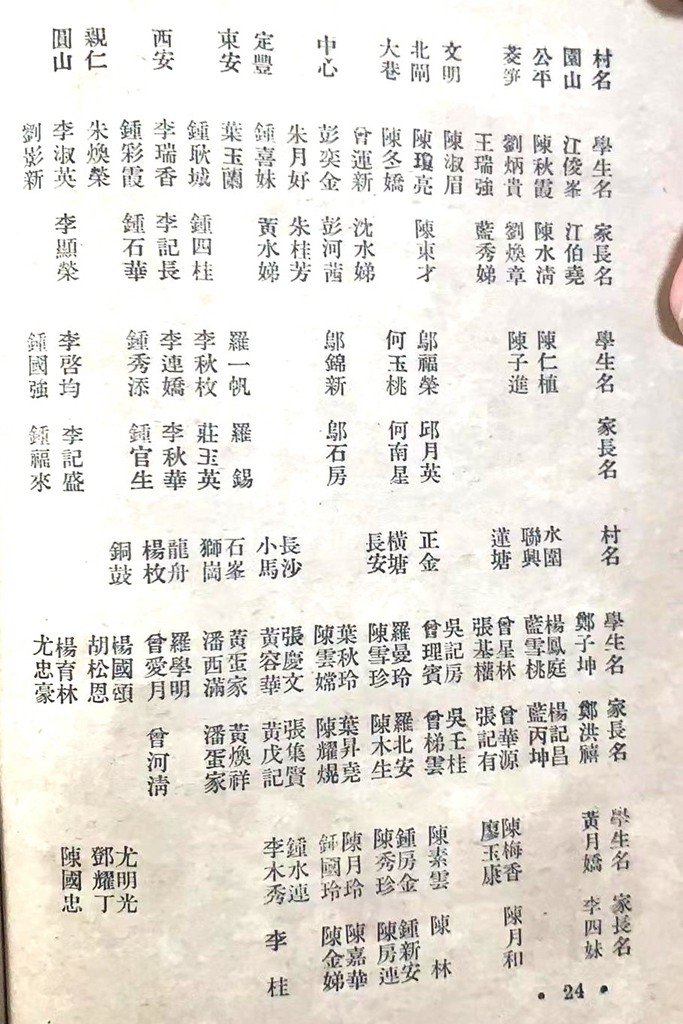 村名 學生名 家長名 學生名 家長名
園山 江俊峯 江伯堯
公平 陳秋霞 陳水清 陳仁植
菱笋 劉炳貴 劉煥章 陳子進
王瑞強 藍秀娣
文明 陳淑眉
北閘 陳瓊亮 陳東才 鄔福榮 邱月英
大巷 陳冬嬌 何玉桃 何南星
曾運新 沈水娣
中心 彭奕金 彭河茜 鄔錦新 鄔石房
朱月好 朱桂芳
定豐 鍾喜妹 黃水娣
東安 葉玉蘭 羅一帆 羅錫
鍾耿城 鍾四桂 李秋枚 莊玉英
西安 李瑞香 李記長 李連嬌 李秋華
鍾彩霞 鍾石華 鍾秀添 鍾官生
親仁 朱煥榮
圓山 李淑英 李顯榮 李啓均 李記盛
劉影新 鍾國強 鍾福來
村名 學生名 家長名 學生名 家長名
鄭子坤 鄭洪禧 黃月嬌 李四妹
水圍 楊鳳庭 楊記昌
聯興 藍雪桃 藍丙坤
蓮塘 曾星林 曾華源 陳梅香 陳月和
張基權 張記有 廖玉康
正金 吳記房 吳壬桂
曾理賓 曾梯雲 陳素雲 陳林
橫塘 羅曼玲 羅北安 鍾房金 鍾新安
長安 陳雪珍 陳木生 陳秀珍 陳房連
葉秋玲 葉昇堯 陳月玲 陳嘉華
陳雲嫦 陳耀焜 鍾國玲 陳金娣
長沙 張慶文 張集賢 鍾水連
小馬 黃容華 黃戊記 李木秀 李桂
石峯 黃蛋家 黃煥祥
獅崗 潘西滿 潘蛋家
龍舟 羅學明
楊枚 曾愛月 曾河清
銅鼓 楊國頌 尤明光
胡松恩 鄧耀丁
楊育林 陳國忠
尤忠豪
• 24 •